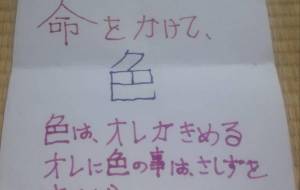 命をかけて、
色
色は、オレがきめる
オレに色の事は、さしずを